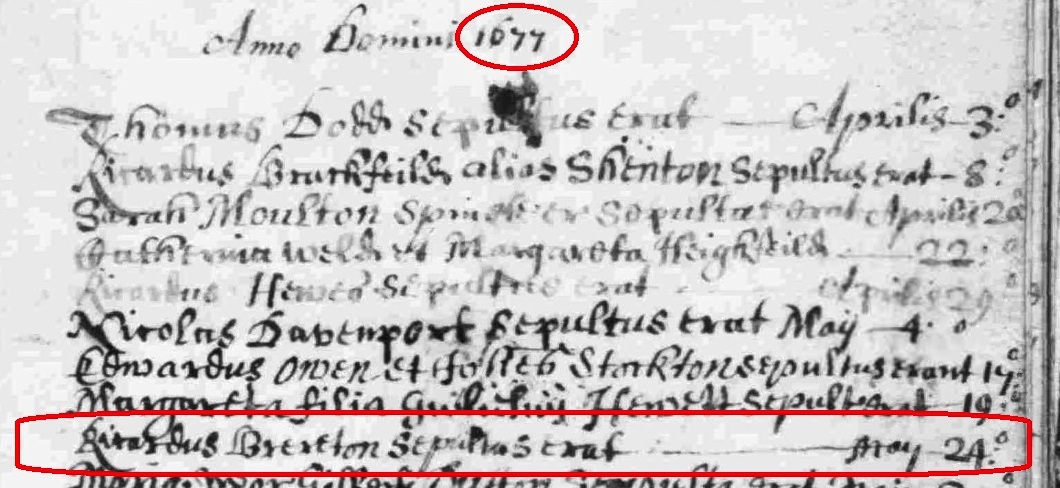 Anno Domini 1677
Thomas Dodd Sepultus erat Aprilis 3:º
Ricardus Brackfeild alias Shenton Sepultus erat - 8:º
Sarah Moulton Spinster Sepulta erat Aprilis 20
Katherina Weld et Margareta Heighfeild 22:º
Ricardus Hewes Sepultus erat Aprilis 29
Nicolas Davenport Sepultus erat May 4º
Edwardus Owen et Stockton Sepultus erant 17:º
Margareta filia Hewett Sepulta erat 19:º
Ricardus Brereton Sepultus erat May 24:º